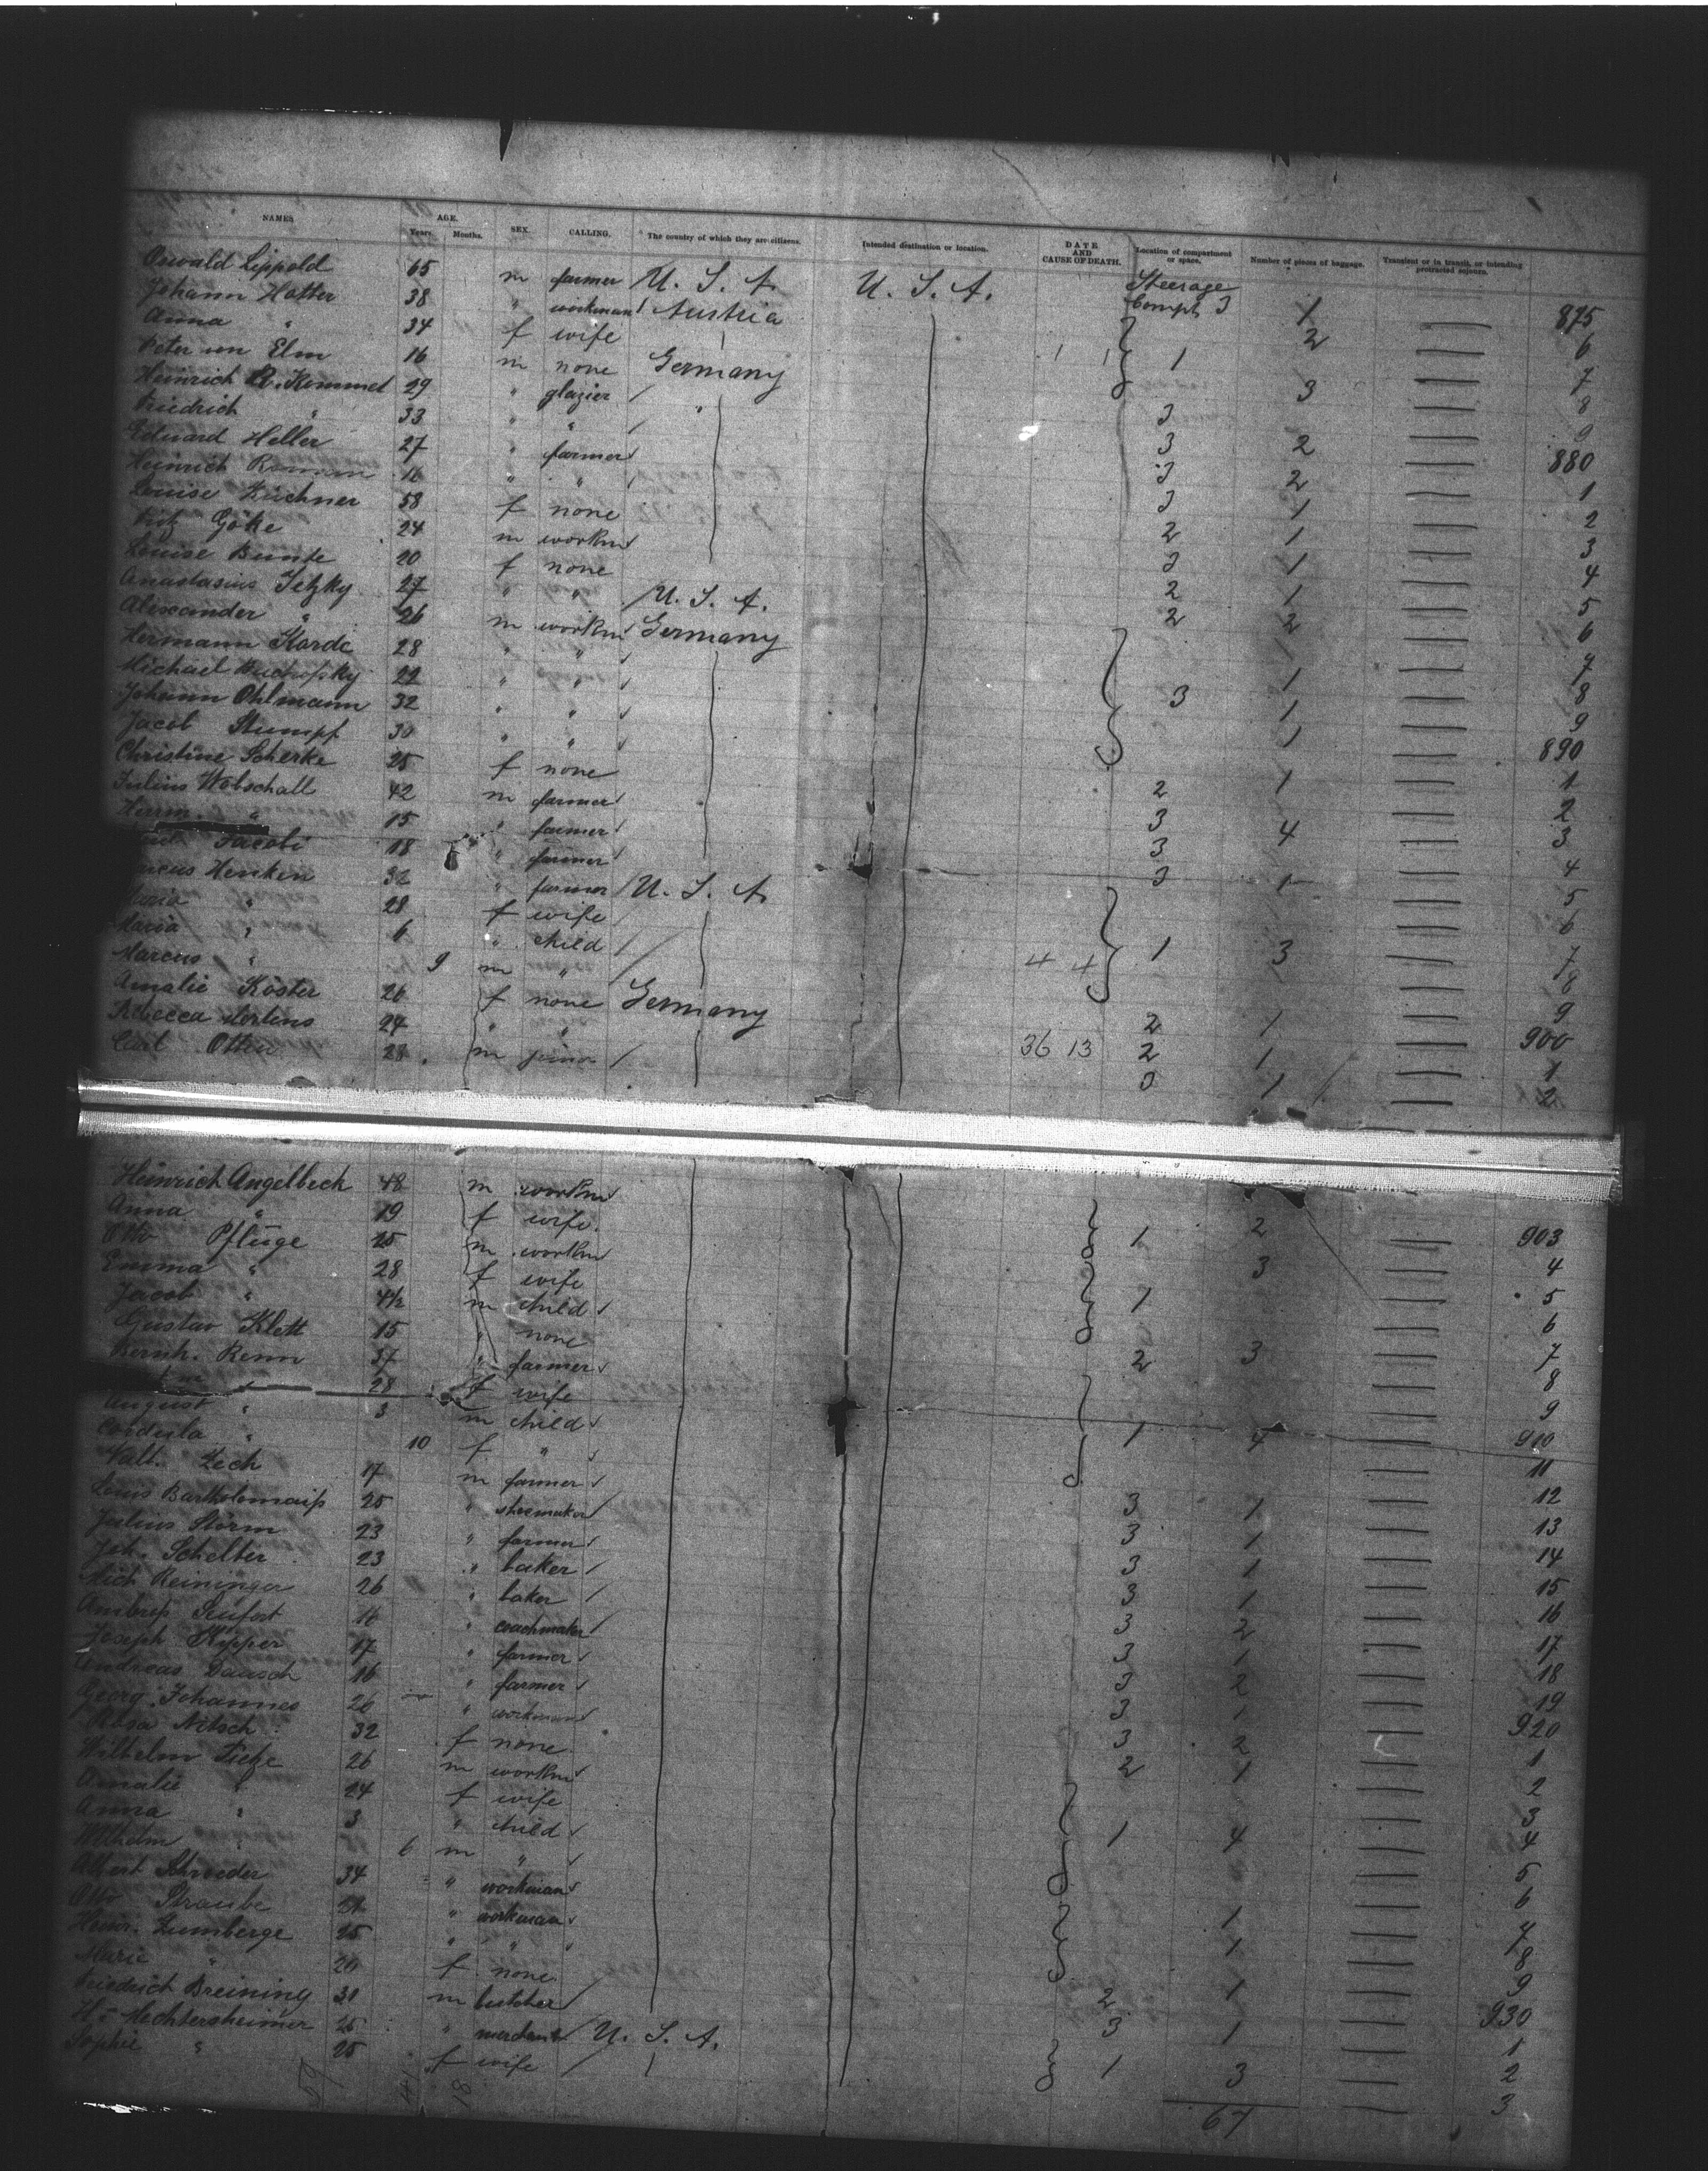 NAMES AGE. Years. Months. SEX. CALLING. The country of which they are citizens. Intended destination or location. DATE AND CAUSE OF DEATH. Location of compartment or space. Number of pieces of baggage. Transient or in transit, or intending protracted sojourn.
Oswald Lippold 65 m farmer U. S. A. U. S. A. Steerage Compt. 3 1 875
Johann Hotter 38 " workman Austria 2 6
Anna " 34 f wife 1 7
Peter von Elm 16 m none Germany 3 8
Heinrich R. Kemmel 29 " glazier " 3 9
Friedrich " 33 " " 3 2 880
Eduard Heller 27 " farmer 3 2 1
Heinrich 16 " " 3 1 2
Louise Kirchner 58 f none 2 1 3
Fritz Göke 24 m workm 3 1 4
Louise Bunte 20 f none 2 1 5
Anastasius Jetzky 27 " " U. S. A. 2 2 6
Alexander " 26 m workm Germany 7
Hermann Korde 28 " " 1 8
Michael 22 " " 3 1 9
Johann Ohlmann 32 " " 1 890
Jacob Stumpf 30 " " 1
Christine Scherke 25 f none 2 1 2
Julius Wobschall 42 m farmer 3 4 3
Herm. " 15 " farmer 3 4
Jacobi 18 " farmer 3 1 5
Henken 32 " farmer U. S. A. 6
Maria " 28 f wife 7
Maria " 6 " child 1 3 8
Marcus " 9 m " 4 4 9
Amalie Köster 26 f none Germany 2 1 900
Rebecca Mertens 24 " " 36 13 2 1 1
Carl Otten 23 m joiner 3 1 2
Heinrich Angelbeck 48 m workm 2 903
Anna " 19 f wife 1 4
Otto Pflüge 25 m workm 3 5
Emma " 28 f wife 1 6
Jacob " 4½ m child 7
Gustav Klett 15 " none 2 3 8
Bernh. Renn 37 " farmer 9
" 28 f wife 1 4 910
August " 3 m child 11
Cordula " 10 f " 12
Valt. Zech 17 m farmer 3 1 13
Louis Bartholomaiß 25 " shoemaker 3 1 14
Julius Störm 23 " farmer 3 1 15
Joh. Schelter 23 " baker 3 1 16
Mich Reininger 26 " baker 3 2 17
Seufert 16 " coachmaker 3 1 18
Joseph Kipper 17 " farmer 3 2 19
Andreas Daasch 16 " farmer 3 1 920
Georg Johannes 26 " workman 3 2 1
Rosa Nitsch 32 f none 2 1 2
Wilhelm Tietze 26 m workm 3
Amalie " 24 f wife 1 4 4
Anna " 3 " child 5
Wilhelm " 6 m " 6
Albert Schroeder 34 " workman 1 7
Otto Straube " workman 1 8
Heinr. Lumberge 25 " " 9
Marie " 20 f none 2 1 930
Friedrich Breining 31 m butcher 3 1 1
H. Hechtersheimer 25 " merchant U. S. A. 1 3 2
Sophie " 25 f wife 3
59 67